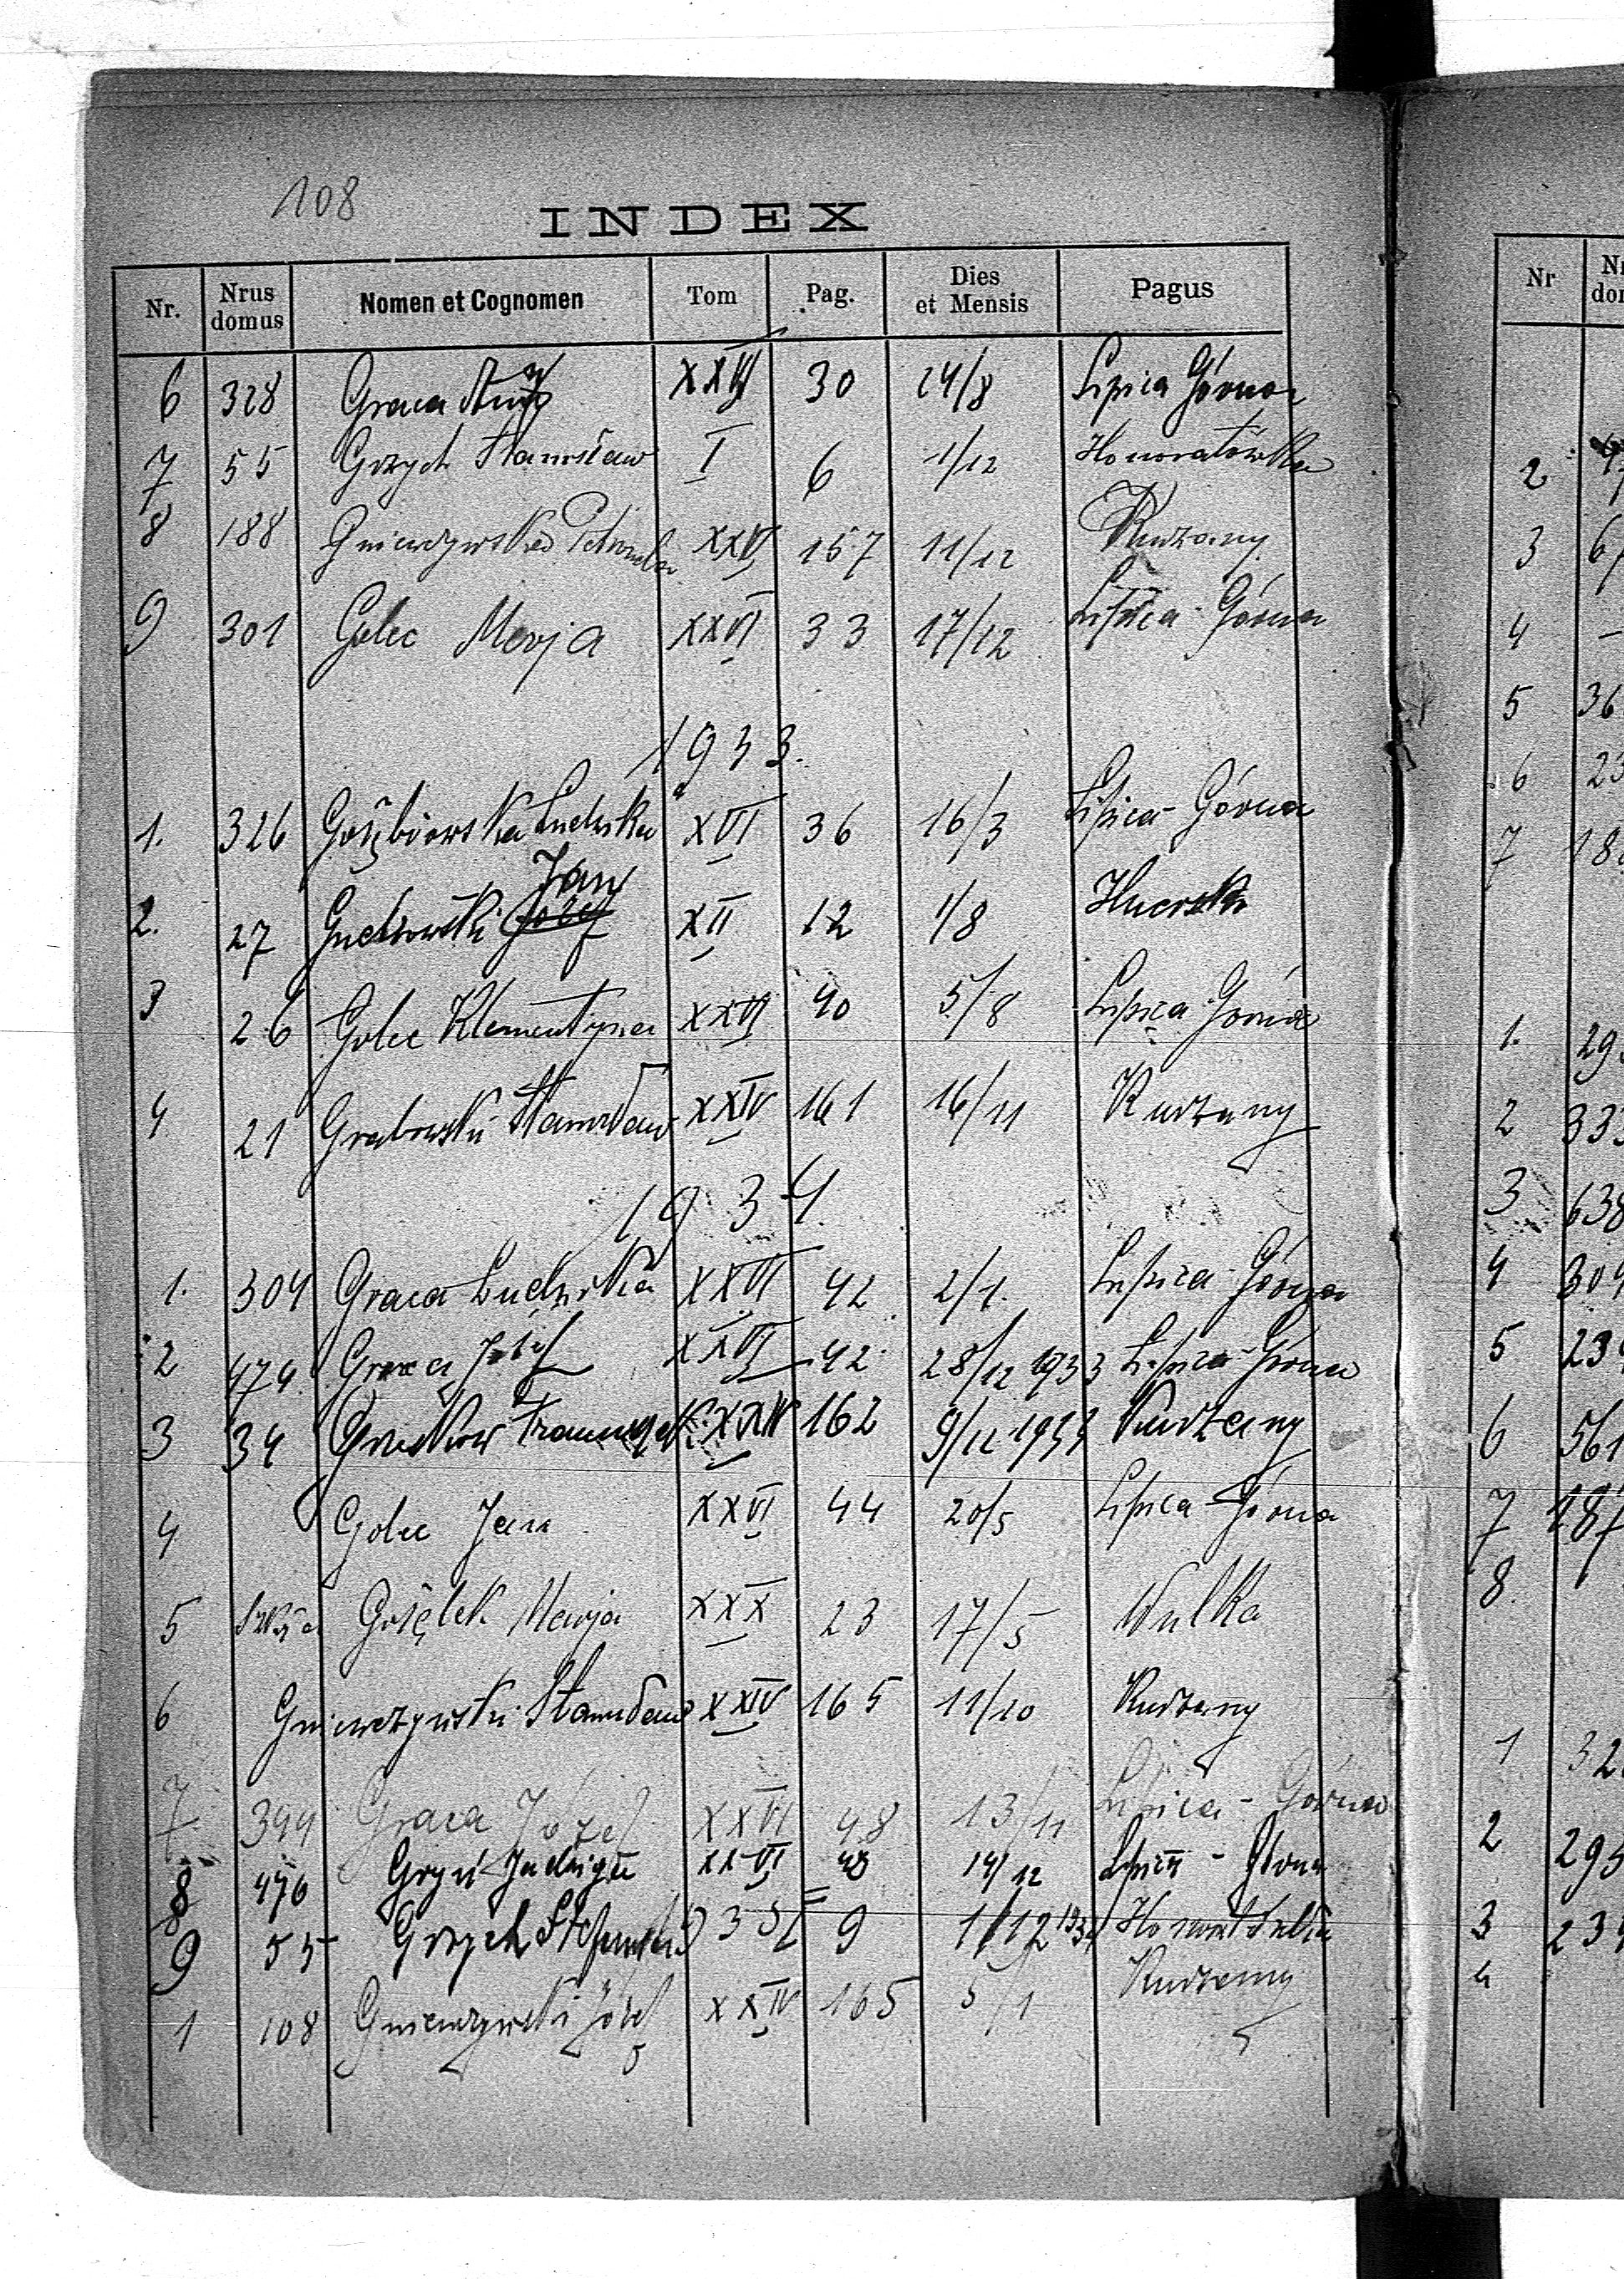 108
INDEX
Nr. Nrus domus Nomen et Cognomen Tom Pag. Dies et Mensis Pagus
6 328 Graca XXVI 30 24/8 Lipica Górna
7 55 Grzych Stanisław I 6 1/12 Honoratówka
8 188 Gniewzywska Petronela XXV 157 11/12 Kurzany
9 301 Golec Marja XXVI 33 17/12 Lipica-Górna
1933.
1. 326 Ludwika XVI 36 16/3 Lipica-Górna
2. 27 Guchowski Józef Jan XII 12 1/8
3 26 Golec Klementyna XXVI 40 5/8 Lipica-Górna
4 21 Grabowski Stanisław XXIV 161 16/11 Kurzany
1934.
1. 304 Graca Ludwika XXVI 42 2/1. Lipica-Górna
2 474 Graca Józef XXVI 42 28/12 1933 Lipica-Górna
3 34 Franciszek XXIV 162 9/12 1933 Kurzany
4 Golec Jan XXVI 44 20/5 Lipica-Górna
5 Marja XXX 23 17/5 Wulka
6 Gniewzywski Stanisław XXIV 165 11/10 Kurzany
7 394 Graca Józef XXVI 48 13/11 Lipica-Górna
8 476 Gryń Jadwiga XXVI 48 14/12 Lipica-Górna
9 55 Grzych 9 1/12 1934
1935
1 108 Gniewzywski Józef XXIV 165 5/1 Kurzany
Nr
2
3
4 —
5 36
6 23
7 18
1. 29
2 33
3 638
4 304
5 23
6 561
7 187
8.
1 32
2 295
3 23
4